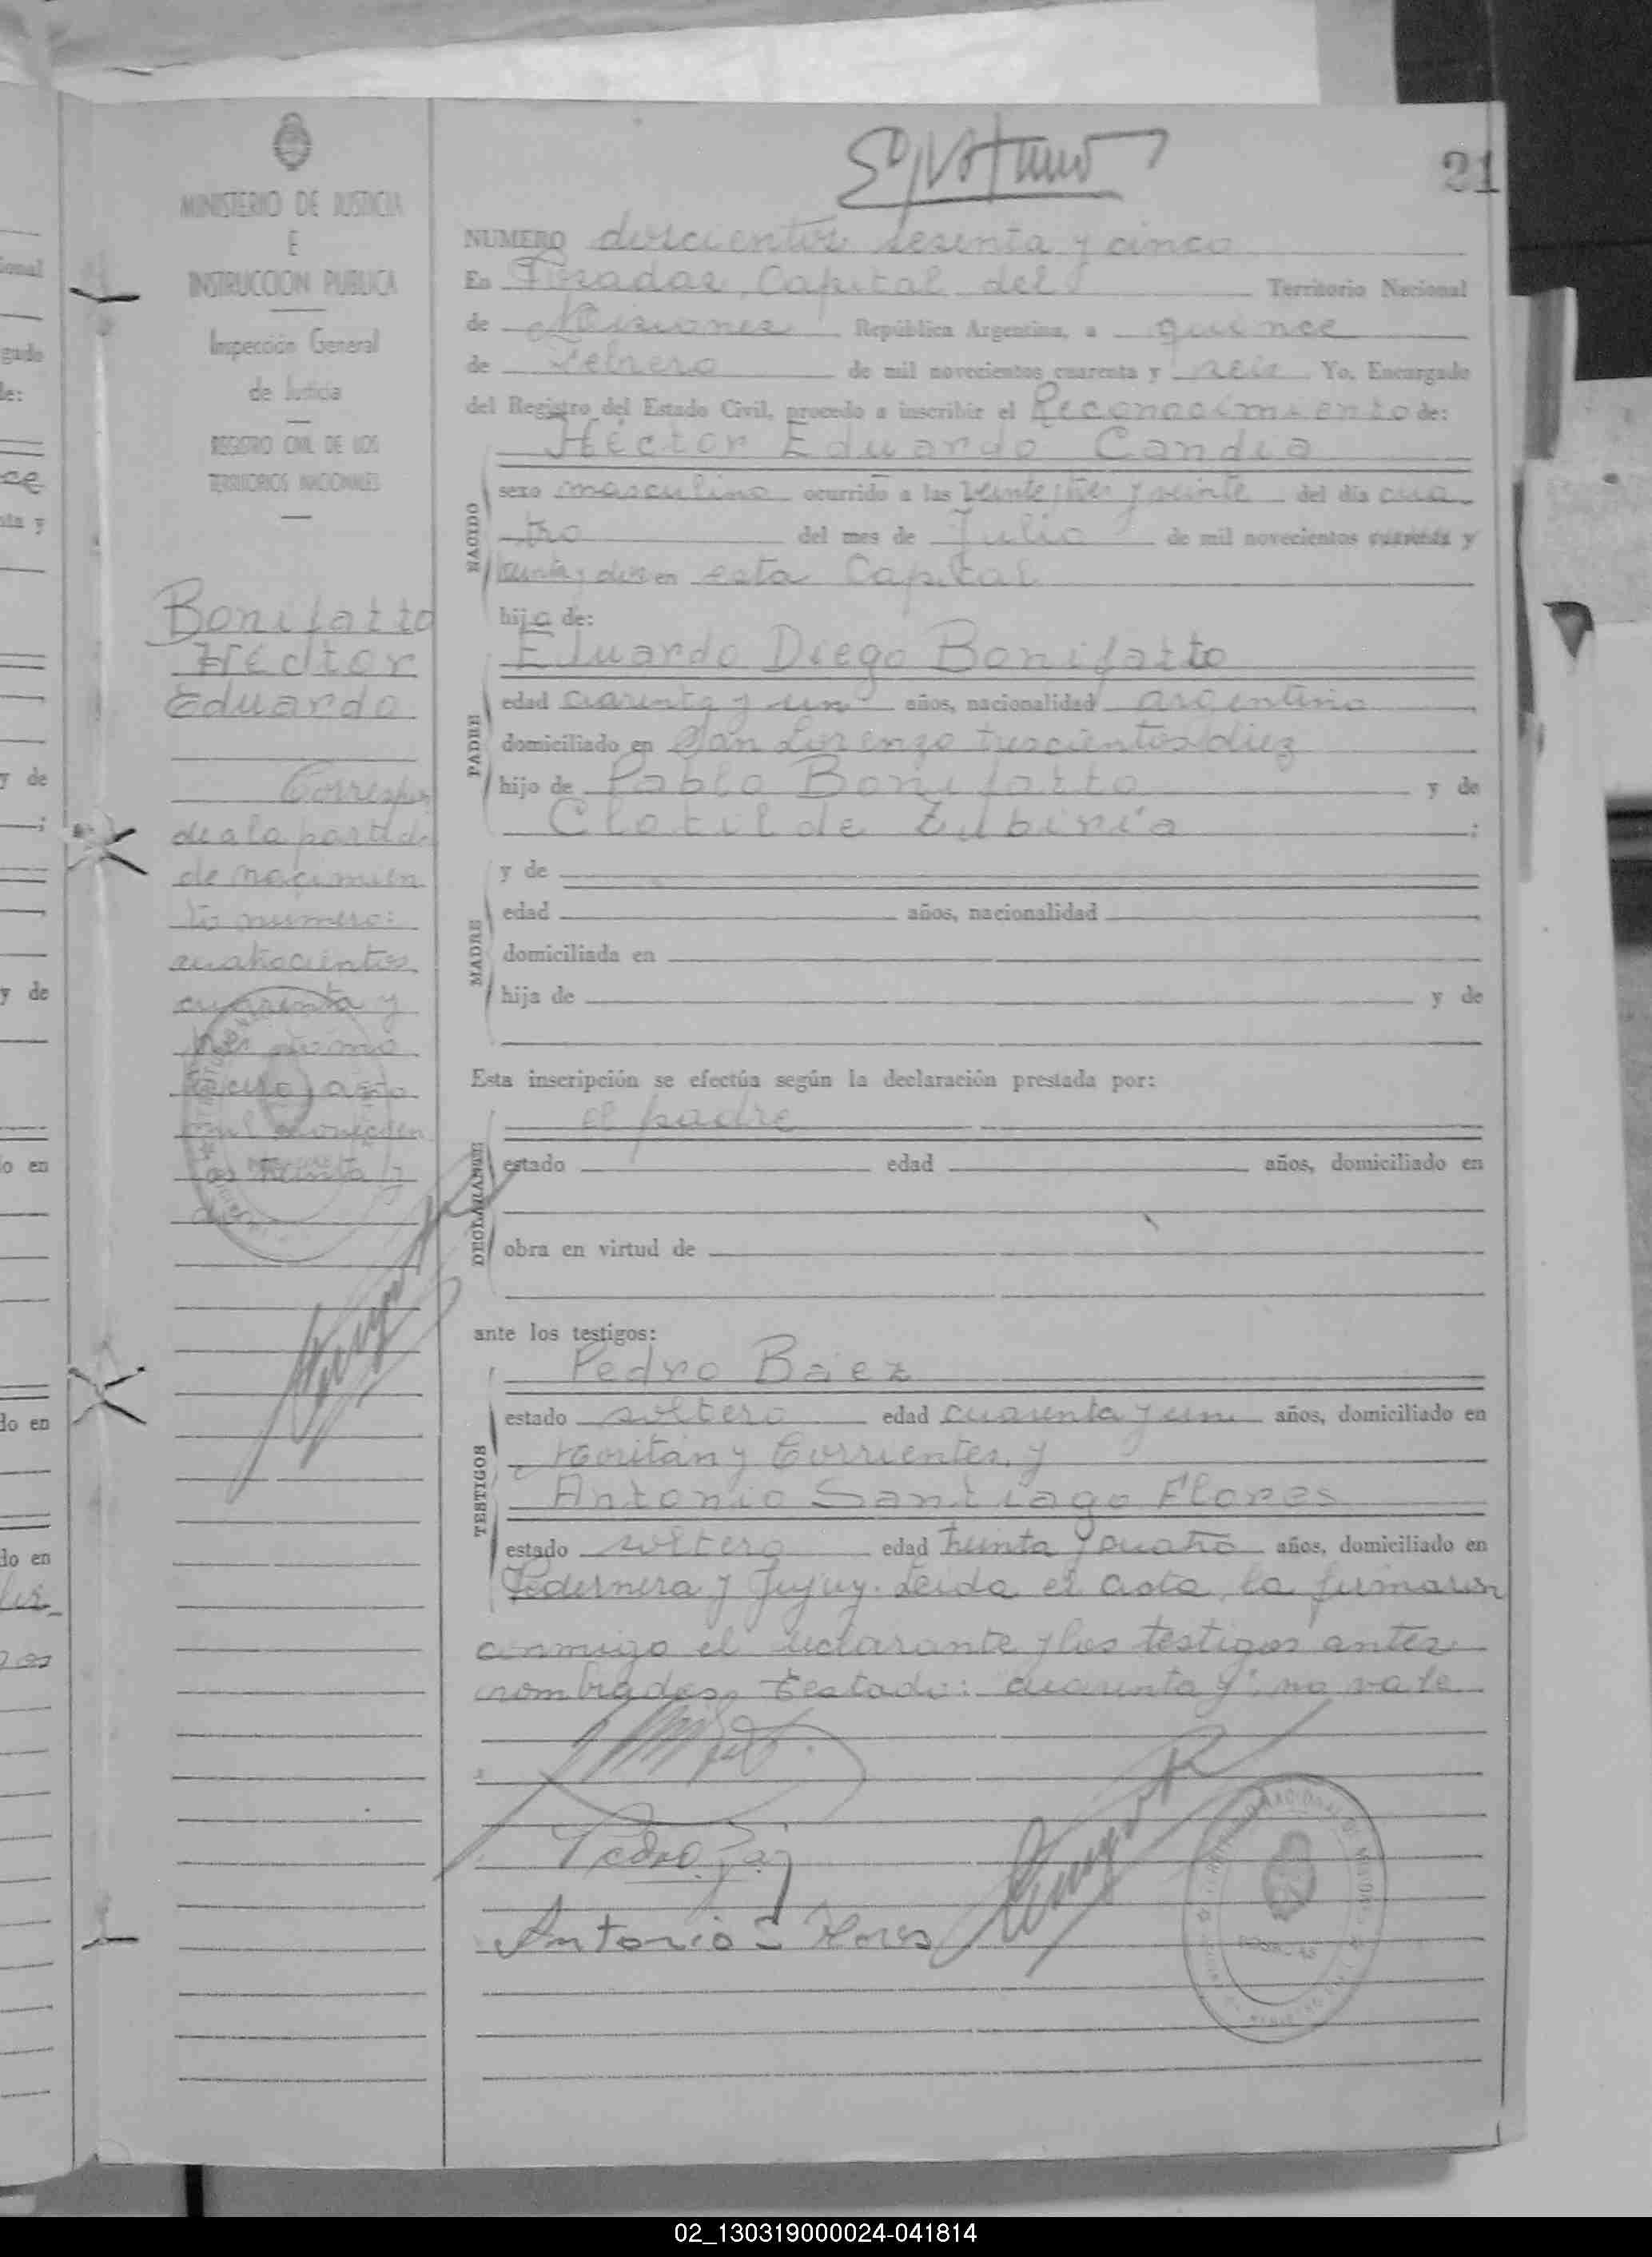 21
MINISTERIO DE JUSTICIA
E
INSTRUCCION PUBLICA
Inspección General
de Justicia
REGISTRO CIVIL DE LOS
TERRITORIOS NACIONALES
Bonifatto
Héctor
Eduardo
Correspon
de a la partida
de nacimien
to número:
cuatrocientos
cuarenta y
tres tomo
año
mil novecien
tos treinta y
NUMERO doscientos sesenta y cinco
En Posadas, Capital del Territorio Nacional
de Misiones República Argentina, a quince
de Febrero de mil novecientos cuarenta y seis Yo, Encargado
del Registro del Estado Civil, procedo a inscribir el Reconocimiento de:
Héctor Eduardo Candia
NACIDO
sexo masculino ocurrido a las veinte tres y veinte del día cua
tro del mes de Julio de mil novecientos cuarenta y
treinta y diez en esta Capital
hijo de:
PADRE
Eduardo Diego Bonifatto
edad cuarenta y un años, nacionalidad argentino
domiciliado en San Lorenzo trescientos diez
hijo de Pablo Bonifatto y de
Clotilde Zubiría ;
MADRE
y de
edad años, nacionalidad
domiciliada en
hija de y de
Esta inscripción se efectúa según la declaración prestada por:
DECLARANTE
el padre
estado edad años, domiciliado en
obra en virtud de
ante los testigos:
TESTIGOS
Pedro Báez
estado soltero edad cuarenta y un años, domiciliado en
Roritán y Corrientes, y
Antonio Santiago Flores
estado soltero edad treinta y cuatro años, domiciliado en
Pedernera y Jujuy. Leída el acta, la firmaron
conmigo el declarante y los testigos antes
nombrados. Testado: cuarenta y: no vale
Pedro Baez
Antonio S Flores
POSADAS
02_130319000024-041814